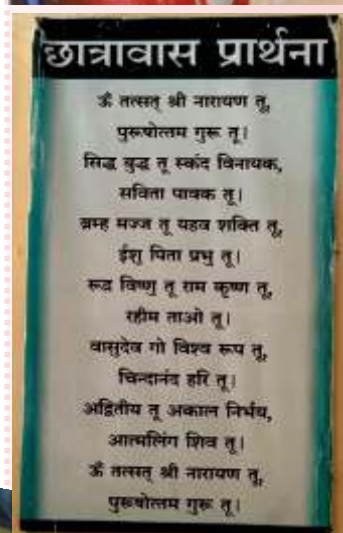 छात्रावास प्रार्थना
ॐ तत्सत् श्री नारायण तू,
पुरूषोत्तम गुरू तू।
सिद्ध बुद्ध तू स्कंद विनायक,
सविता पावक तू।
ब्रम्ह मज्ज तू यहव शक्ति तू,
ईशु पिता प्रभु तू।
रूद्र विष्णु तू राम कृष्ण तू,
रहीम ताओ तू।
वासुदेव गो विश्व रूप तू,
चिन्दानंद हरि तू।
अद्वितीय तू अकाल निर्भय,
आत्मलिंग शिव तू।
ॐ तत्सत् श्री नारायण तू,
पुरूषोत्तम गुरू तू।